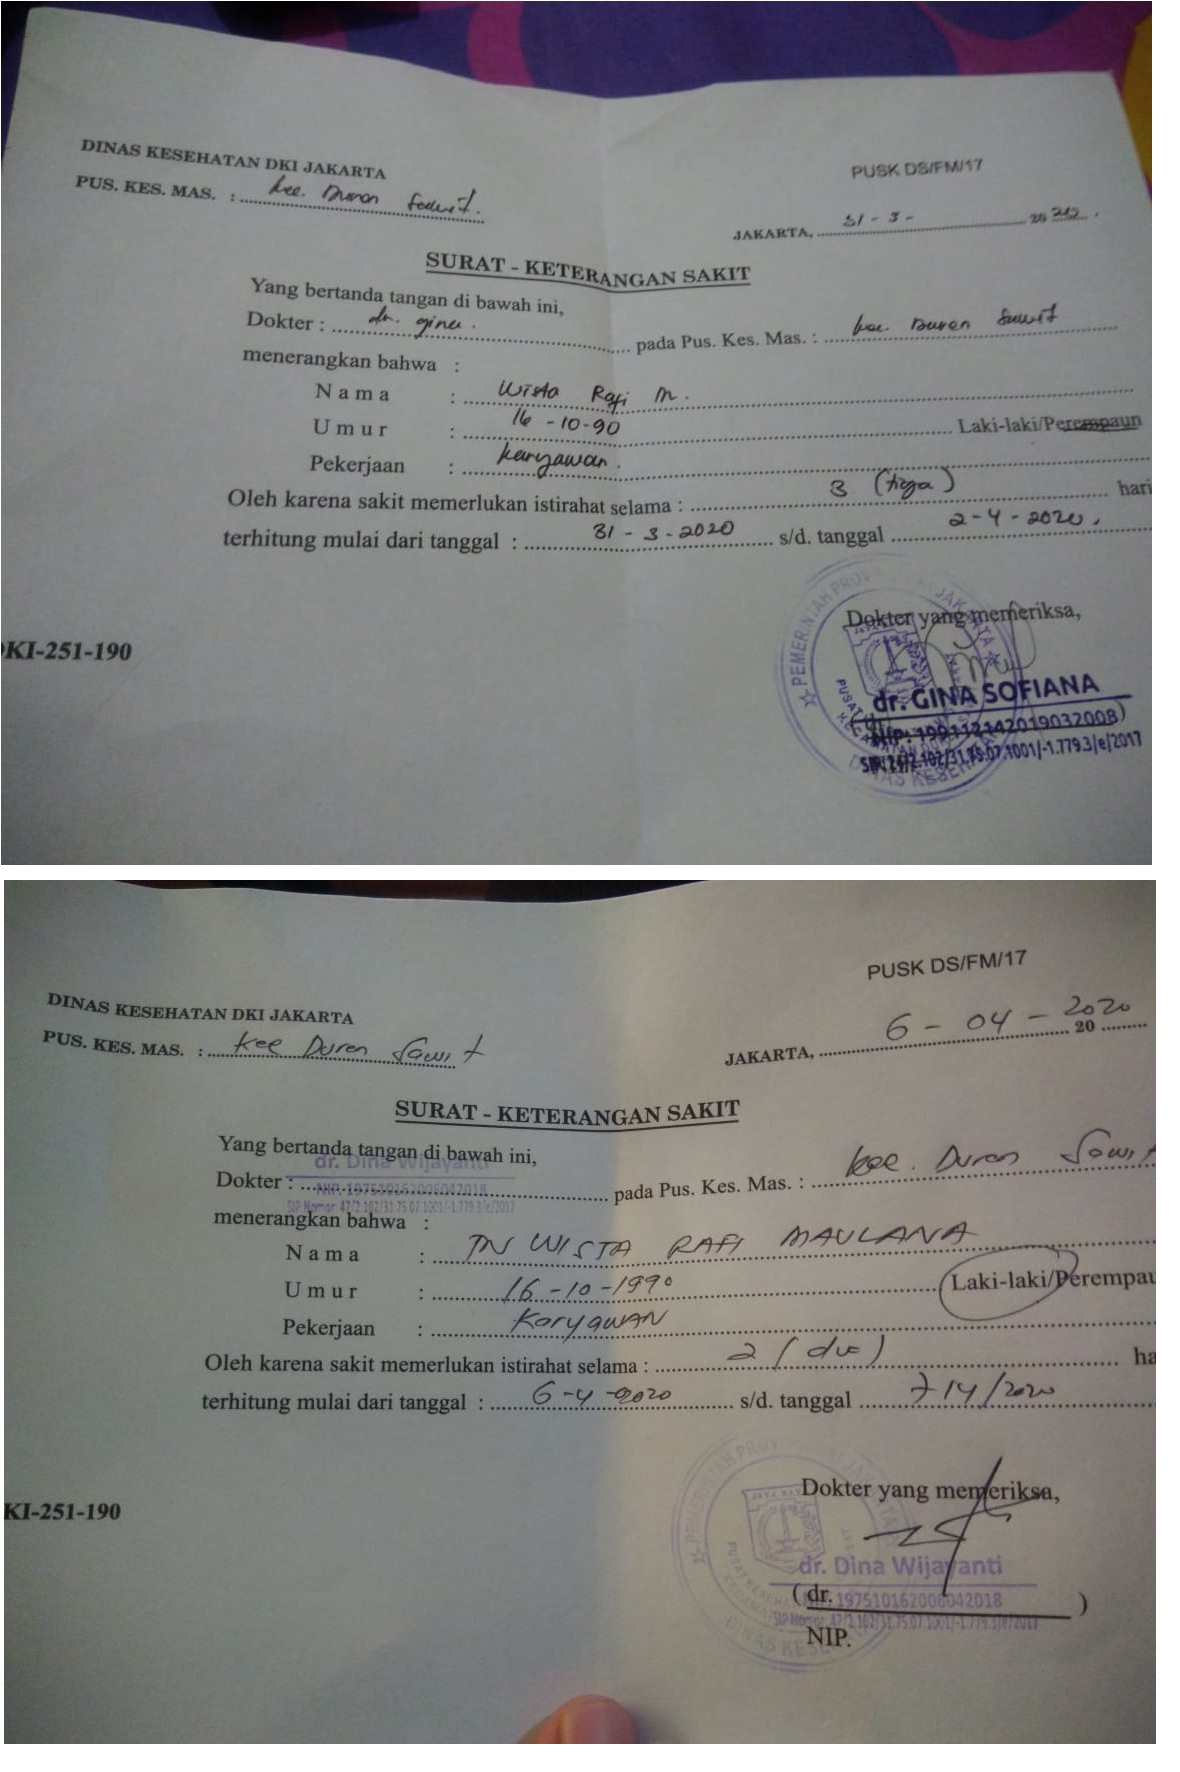 DINAS KESEHATAN DKI JAKARTA
PUSK DS/FM/17
PUS. KES. MAS. : Kec. Duren Sawit.
JAKARTA, 31 - 3 - 20 20 .
SURAT - KETERANGAN SAKIT
Yang bertanda tangan di bawah ini,
Dokter : dr. gina . pada Pus. Kes. Mas. : kec. Duren Sawit
menerangkan bahwa :
N a m a : Wista Rafi M.
U m u r : 16 -10-90 Laki-laki/Perempaun
Pekerjaan : karyawan .
Oleh karena sakit memerlukan istirahat selama : 3 (tiga) hari
terhitung mulai dari tanggal : 31 - 3 -2020 s/d. tanggal 2-4 - 2020 .
Dokter yang memeriksa,
KI-251-190
PEMERINTAH PROV JAKARTA
dr. GINA SOFIANA
NIP: 199112142019032008
/2.102/31.75.07.1001/-1.779.3/e/2017
DINAS KESEHATAN
PUSK DS/FM/17
DINAS KESEHATAN DKI JAKARTA
PUS. KES. MAS. : Kec Duren Sawit
JAKARTA, 6 - 04 - 2020 20
SURAT - KETERANGAN SAKIT
Yang bertanda tangan di bawah ini,
dr. Dina Wijayanti
Dokter : pada Pus. Kes. Mas. : kec. Duren Sawit
NIP. 197510162006042018
SIP Nomor: 47/2.102/31.75.07.1001/-1.779.3/e/2017
menerangkan bahwa :
N a m a : TN WISTA RAFI MAULANA
U m u r : 16 -10 -1990 Laki-laki/Perempau
Pekerjaan : KaryawAN
Oleh karena sakit memerlukan istirahat selama : 2 ( dua ) ha
terhitung mulai dari tanggal : 6 -4 -2020 s/d. tanggal 7 /4 /2020
Dokter yang memeriksa,
KI-251-190
PEMERINTAH PROV JAKARTA
JAYA RAYA
dr. Dina Wijayanti
( dr. )
NIP. 197510162006042018
SIP Nomor: 47/2.102/31.75.07.1001/-1.779.3/e/2017
NIP.
DINAS KESE